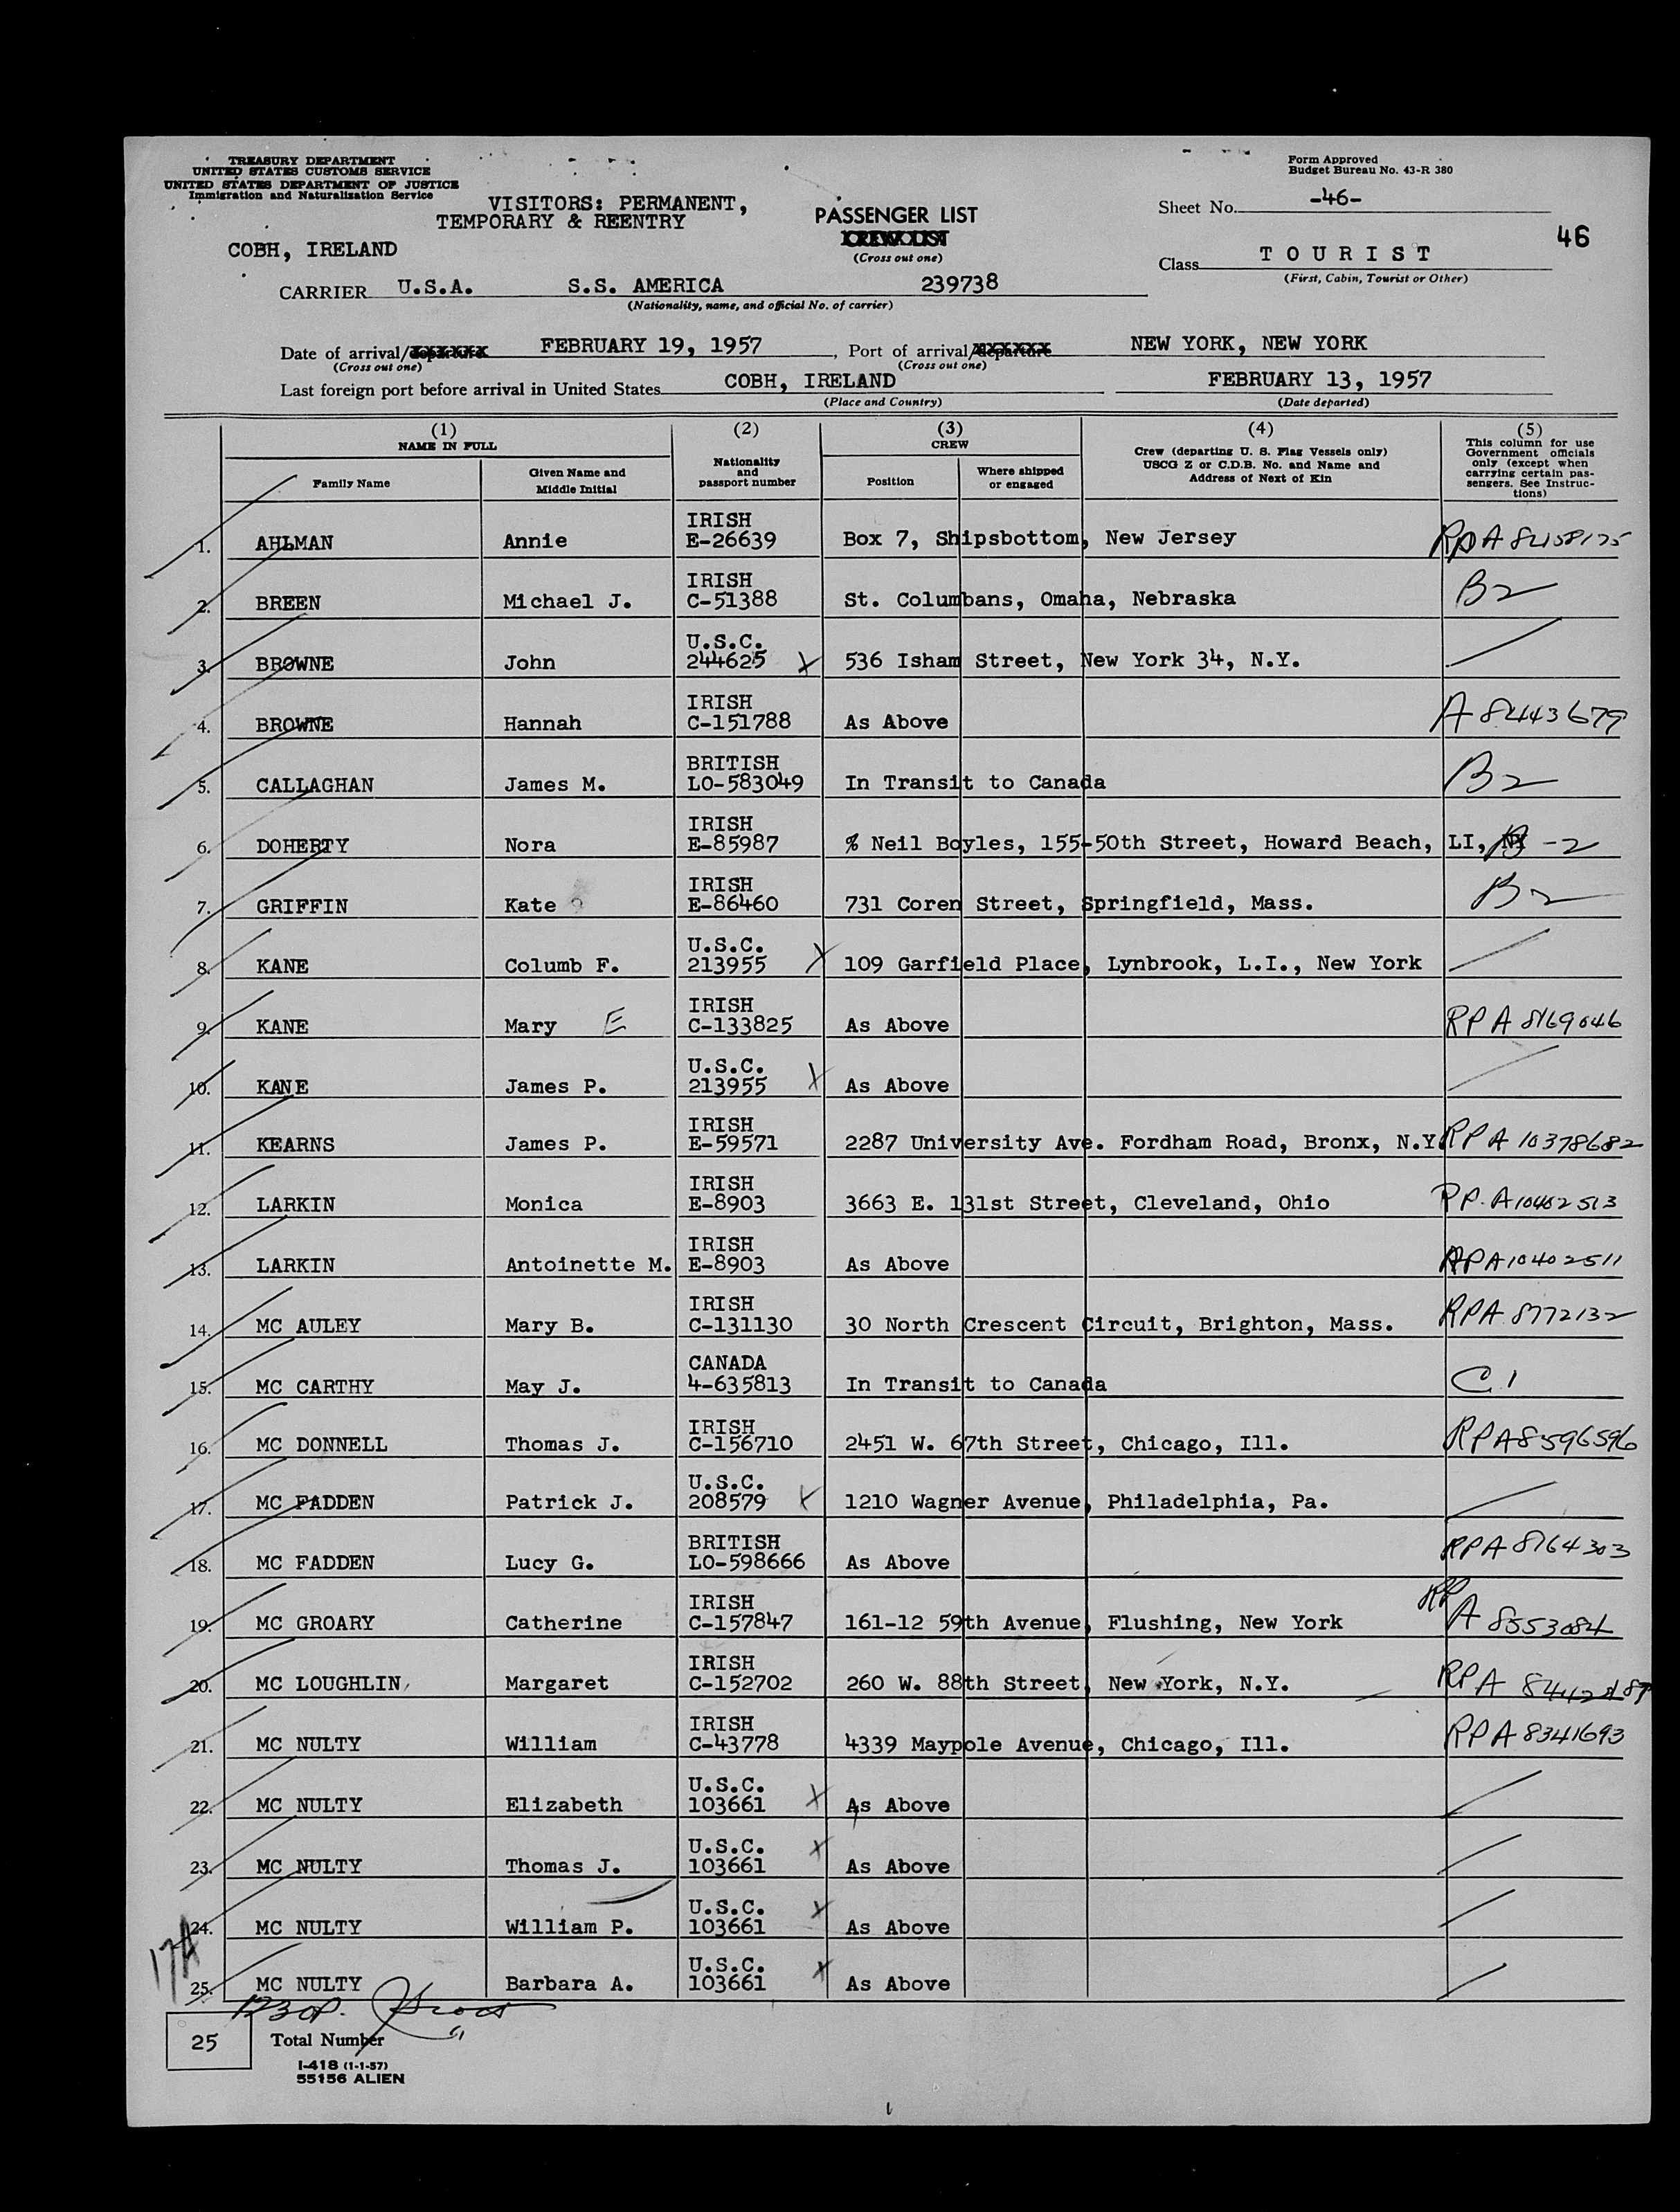 TREASURY DEPARTMENT
UNITED STATES CUSTOMS SERVICE
UNITED STATES DEPARTMENT OF JUSTICE
Immigration and Naturalization Service
Form Approved
Budget Bureau No. 43-R 380
VISITORS: PERMANENT,
TEMPORARY & REENTRY
PASSENGER LIST
CREW LIST
(Cross out one)
Sheet No. -46-
46
COBH, IRELAND
Class T O U R I S T
(First, Cabin, Tourist or Other)
CARRIER U.S.A. S.S. AMERICA 239738
(Nationality, name, and official No. of carrier)
Date of arrival/departure FEBRUARY 19, 1957, Port of arrival/departure NEW YORK, NEW YORK
(Cross out one) (Cross out one)
Last foreign port before arrival in United States COBH, IRELAND FEBRUARY 13, 1957
(Place and Country) (Date departed)
(1) NAME IN FULL
Family Name
Given Name and Middle Initial
(2) Nationality and passport number
(3) CREW
Position
Where shipped or engaged
(4) Crew (departing U. S. Flag Vessels only) USCG Z or C.D.B. No. and Name and Address of Next of Kin
(5) This column for use Government officials only (except when carrying certain passengers. See Instructions)
1. AHLMAN Annie IRISH E-26639 Box 7, Shipsbottom, New Jersey RPA 8458175
2. BREEN Michael J. IRISH C-51388 St. Columbans, Omaha, Nebraska B2
3. BROWNE John U.S.C. 244625 X 536 Isham Street, New York 34, N.Y.
4. BROWNE Hannah IRISH C-151788 As Above A 8443679
5. CALLAGHAN James M. BRITISH LO-583049 In Transit to Canada B2
6. DOHERTY Nora IRISH E-85987 % Neil Boyles, 155-50th Street, Howard Beach, LI, NY B-2
7. GRIFFIN Kate IRISH E-86460 731 Coren Street, Springfield, Mass. B2
8. KANE Columb F. U.S.C. 213955 X 109 Garfield Place, Lynbrook, L.I., New York
9. KANE Mary E IRISH C-133825 As Above RPA 8169046
10. KANE James P. U.S.C. 213955 X As Above
11. KEARNS James P. IRISH E-59571 2287 University Ave. Fordham Road, Bronx, N.Y. RPA 10378682
12. LARKIN Monica IRISH E-8903 3663 E. 131st Street, Cleveland, Ohio RP A10402513
13. LARKIN Antoinette M. IRISH E-8903 As Above RPA 10402511
14. MC AULEY Mary B. IRISH C-131130 30 North Crescent Circuit, Brighton, Mass. RPA 8772132
15. MC CARTHY May J. CANADA 4-635813 In Transit to Canada C1
16. MC DONNELL Thomas J. IRISH C-156710 2451 W. 67th Street, Chicago, Ill. RPA 8596596
17. MC FADDEN Patrick J. U.S.C. 208579 X 1210 Wagner Avenue, Philadelphia, Pa.
18. MC FADDEN Lucy G. BRITISH LO-598666 As Above RPA 8764303
19. MC GROARY Catherine IRISH C-157847 161-12 59th Avenue, Flushing, New York RP A 8553084
20. MC LOUGHLIN Margaret IRISH C-152702 260 W. 88th Street, New York, N.Y. RPA
21. MC NULTY William IRISH C-43778 4339 Maypole Avenue, Chicago, Ill. RPA 8341693
22. MC NULTY Elizabeth U.S.C. 103661 X As Above
23. MC NULTY Thomas J. U.S.C. 103661 X As Above
24. MC NULTY William P. U.S.C. 103661 X As Above
25. MC NULTY Barbara A. U.S.C. 103661 X As Above
25
Total Number
I-418 (1-1-57)
55156 ALIEN